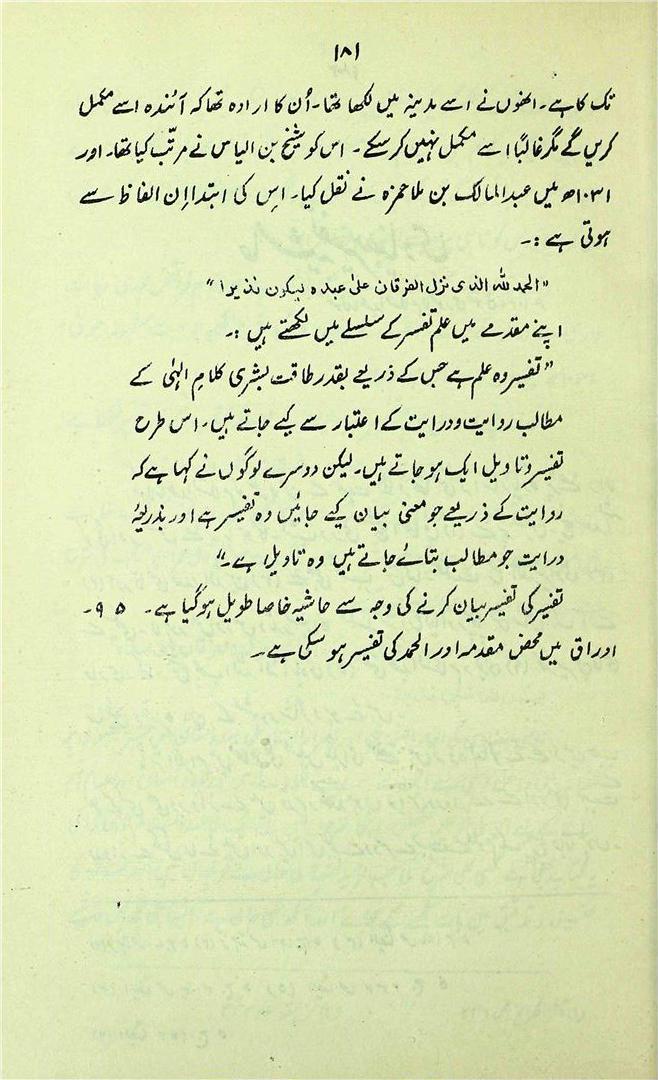 ۱۸۱
تک کا ہے۔ انھوں نے اسے مدینہ میں لکھا تھا۔ اُن کا ارادہ تھا کہ آئندہ اسے مکمل
کریں گے مگر غالباً اسے مکمل نہیں کر سکے۔ اس کو شیخ بن الیاس نے مرتّب کیا تھا۔ اور
۱۰۳۱ھ میں عبدالمالک بن ملا حمزہ نے نقل کیا۔ اِس کی ابتدا اِن الفاظ سے
ہوتی ہے :۔
"الحمد للّٰہ الذی نزل الفرقان علیٰ عبدہ لیکون نذیرا"
اپنے مقدمے میں علم تفسیر کے سلسلے میں لکھتے ہیں :۔
"تفسیر وہ علم ہے جس کے ذریعے بقدر طاقت بشری کلامِ الہٰی کے
مطالب روایت و درایت کے اعتبار سے کیے جاتے ہیں۔ اس طرح
تفسیر و تاویل ایک ہو جاتے ہیں۔ لیکن دوسرے لوگوں نے کہا ہے کہ
روایت کے ذریعے جو معنیٰ بیان کیے جائیں وہ تفسیر ہے اور بذریعۂ
درایت جو مطالب بتائے جاتے ہیں وہ تاویل ہے۔"
تفسیر کی تفسیر بیان کرنے کی وجہ سے حاشیہ خاصا طویل ہو گیا ہے۔ ۹۵۔
اوراق میں محض مقدمہ اور الحمد کی تفسیر ہو سکی ہے۔